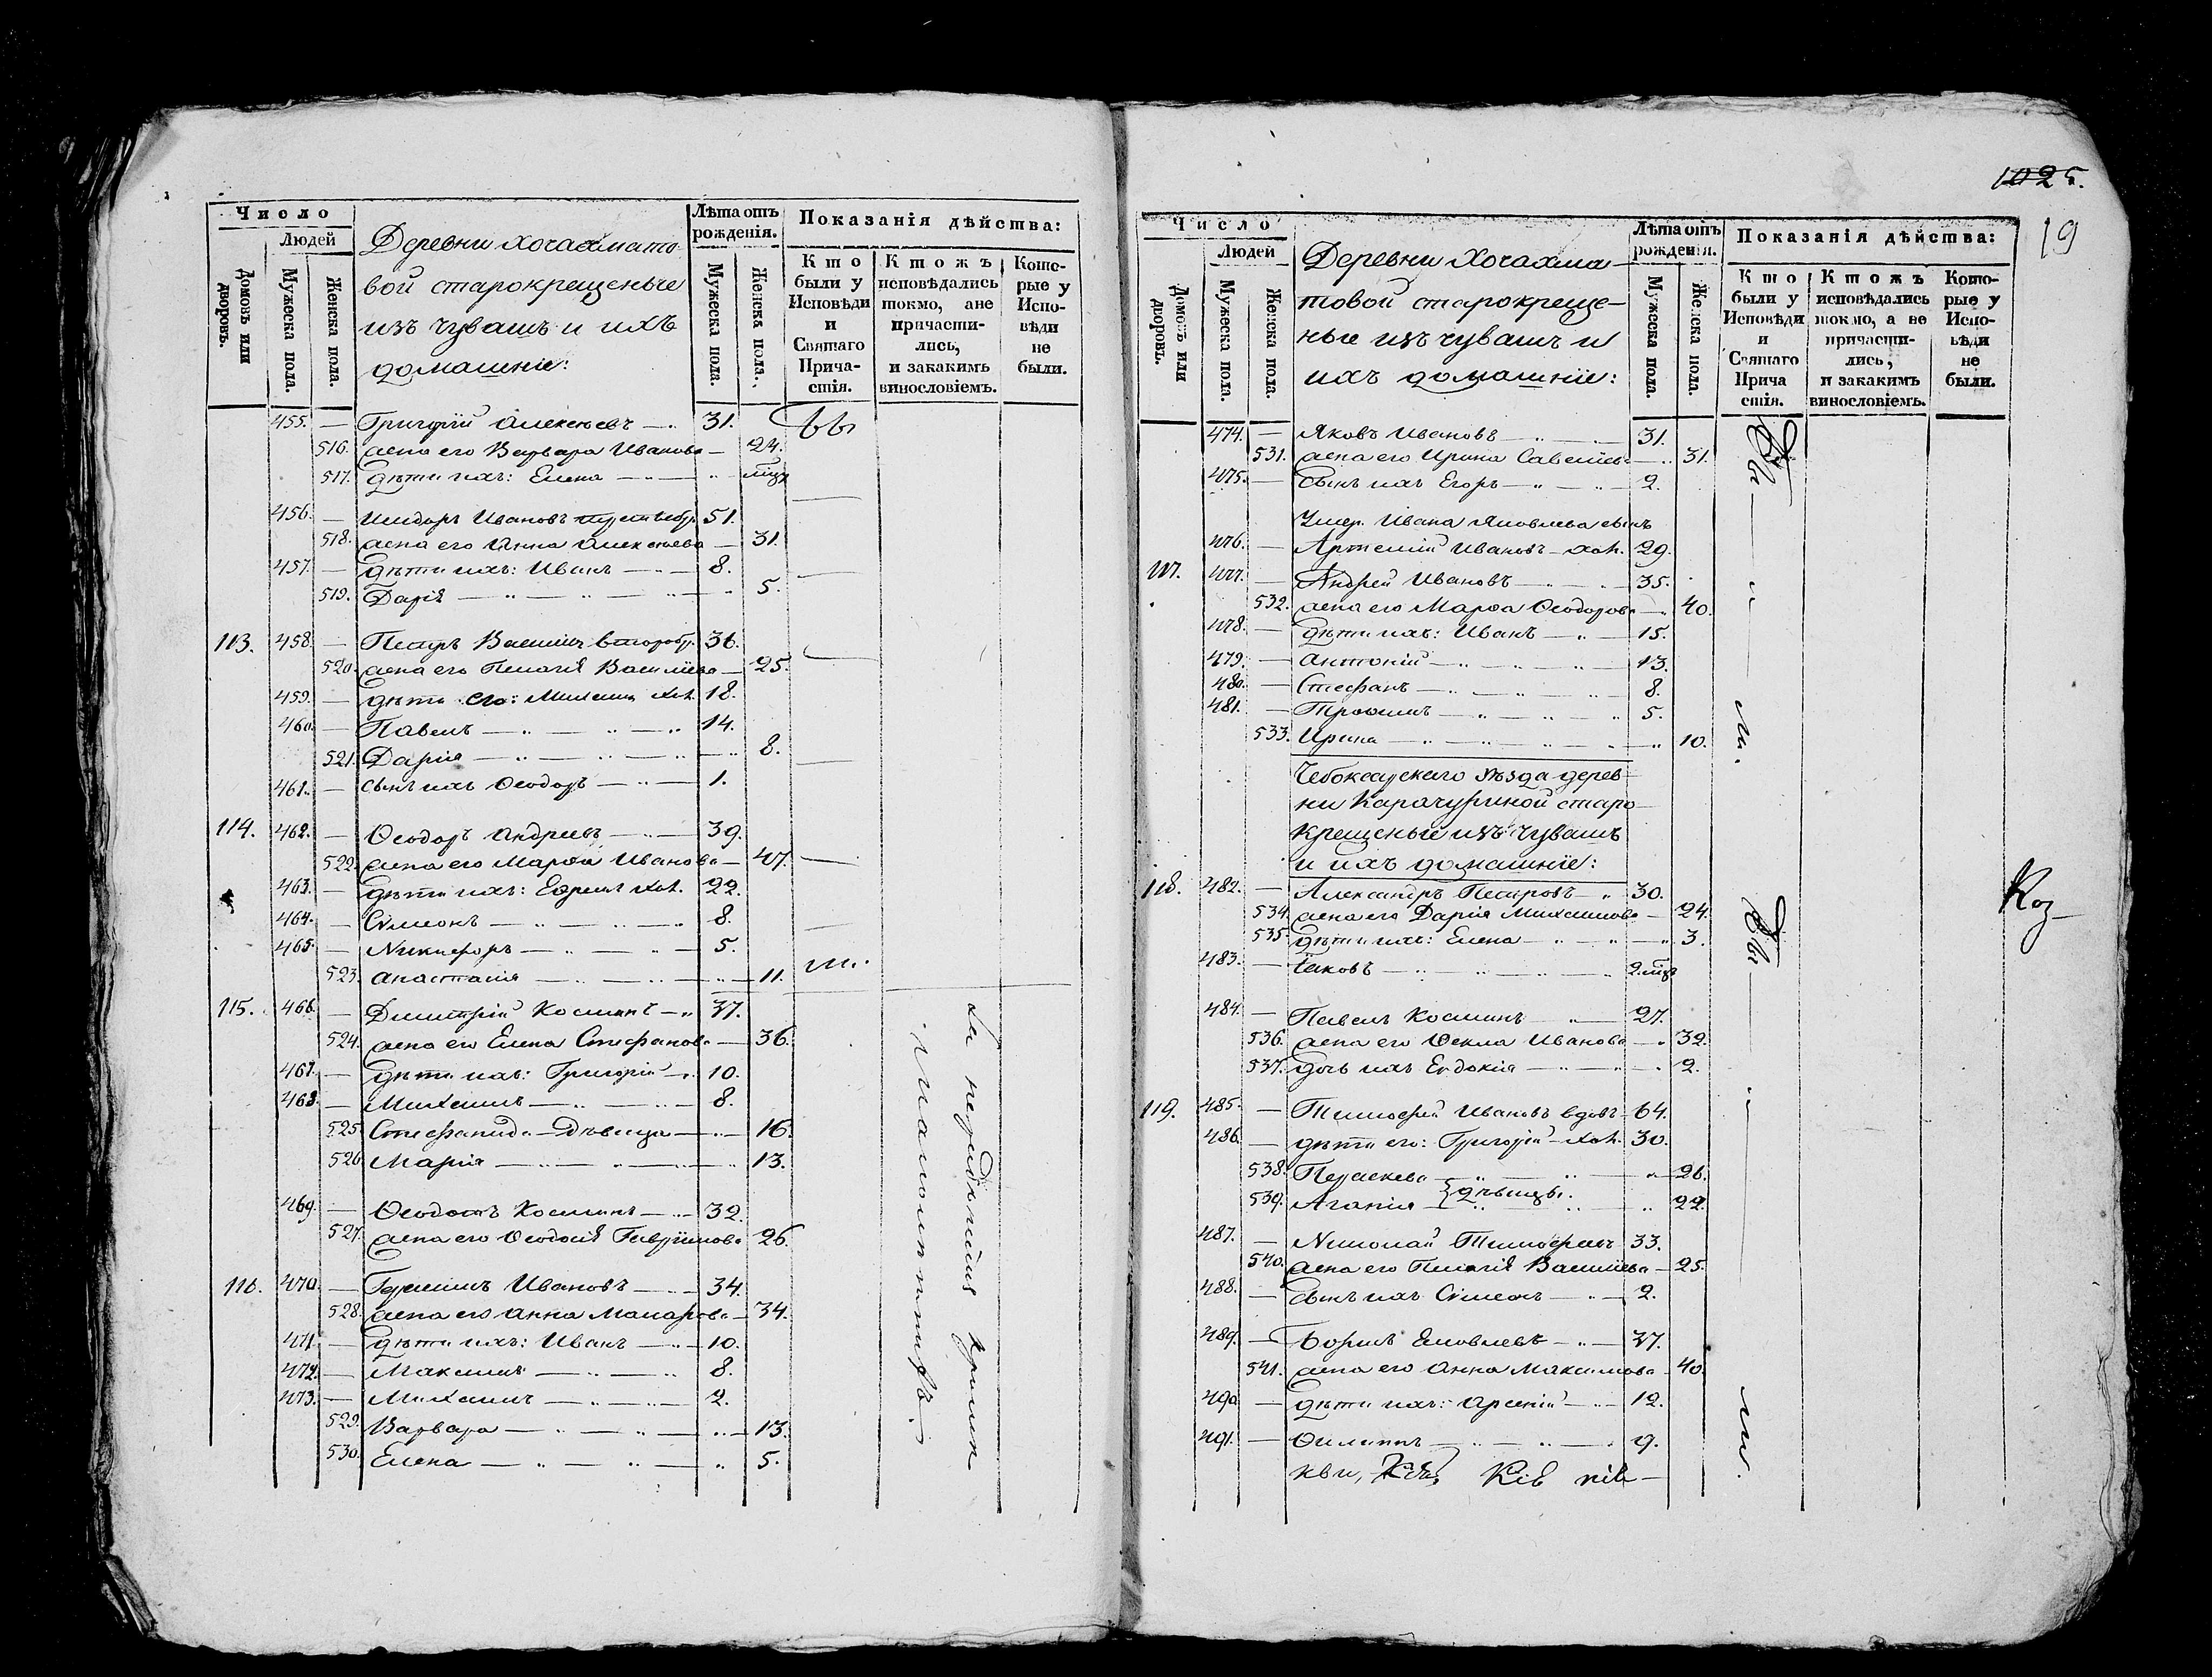 Число
Людей
Домовъ или дворовъ.
Мужеска пола.
Женска пола.
Деревни Хочахмато-
вой старокрещеные
изъ чувашъ и ихъ
домашніе:
Лѣта отъ рожденія.
Мужеска пола.
Женска пола.
Показанія дѣйства:
Кто были у Исповѣди и Святаго Прича-стія.
Ктожъ исповѣдались токмо, ане причасти-лись, и закакимъ винословіемъ.
Кото-рые у Испо-вѣди не были.
455. — Григорій Алексѣевъ — 31.
516. жена его Варвара Иванова — 24.
517. дѣти ихъ: Елена —
456. — Исидоръ Ивановъ 51.
518. жена его Анна Алексѣева — 31.
457. — дѣти ихъ: Иванъ — 8.
519. Дарія — 5.
113. 458. — Петръ Васильевъ второбр. 36.
520. жена его Пелагія Василіева — 25.
459. — дѣти его: Михаилъ хол. 18.
460. — Павелъ — 14.
521. Дарія — 8.
461. — сынъ ихъ Ѳеодоръ — 1.
114. 462. — Ѳеодоръ Андреевъ — 39.
522. жена его Марѳа Иванова — 47.
463. — дѣти ихъ: Ефремъ хол. 22.
464. — Сѵмеонъ — 8.
465. — Никифоръ — 5.
523. Анастасія — 11.
115. 466. — Димитрій Косминъ — 37.
524. жена его Елена Стефанова — 36.
467. — дѣти ихъ: Григорій — 10.
468. — Михаилъ — 8.
525. Стефанида — Дѣвица — 16.
526. Марія — 13.
469. — Ѳеодотъ Косминъ — 32.
527. жена его Ѳеодосія Гавріилова 26.
116. 470. — Герасимъ Ивановъ — 34.
528. жена его Анна Макарова — 34.
471. — дѣти ихъ: Иванъ — 10.
472. — Максимъ — 8.
473. — Михаилъ — 2.
529. Варвара — 13.
530. Елена — 5.
1025.
19
Число
Людей
Домовъ или дворовъ.
Мужеска пола.
Женска пола.
Деревни Хочахма-
товой старокреще-
ные изъ чувашъ и
ихъ домашніе:
Лѣта отъ рожденія.
Мужеска пола.
Женска пола.
Показанія дѣйства:
Кто были у Исповѣди и Святаго Прича стія.
Ктожъ исповѣдались токмо, а не причасти-лись, и закакимъ винословіемъ.
Кото-рые у Испо-вѣди не были.
474. — Яковъ Ивановъ — 31.
531. жена его Ирина Савеліева — 31.
475. — сынъ ихъ Егоръ — 2.
Умер. Ивана Яковлева сынъ
476. — Артемій Ивановъ — хол. 29.
117. 477. — Андрей Ивановъ — 35.
532. жена его Марѳа Ѳеодорова — 40.
478. — дѣти ихъ: Иванъ — 15.
479. — Антоній — 13.
480. — Стефанъ — 8.
481. — Трофимъ — 5.
533. Ирина — 10.
Чебоксарскаго уѣзда дерев-
ни Карачуриной старо-
крещеные изъ чувашъ
и ихъ домашніе:
118. 482. — Александръ Петровъ — 30.
534. жена его Дарія Михаилова — 24.
535. дѣти ихъ: Елена — 3.
483. — Іаковъ —
484. — Павелъ Косминъ — 27.
536. жена его Ѳекла Иванова — 32.
537. дочь ихъ Евдокія — 2.
119. 485. — Тимофей Ивановъ вдовъ — 64.
486. — дѣти его: Григорій — хол. 30.
538. Параскева — 26.
539. Агапія — дѣвицы. 22.
487. — Николай Тимофеевъ 33.
540. жена его Пелагія Василіева — 25.
488. — сынъ ихъ Сѵмеонъ — 2.
489. — Борисъ Яковлевъ — 37.
541. жена его Анна Максимова 40.
490. — дѣти ихъ: Арсеній — 12.
491. — Филиппъ — 9.
Коз-